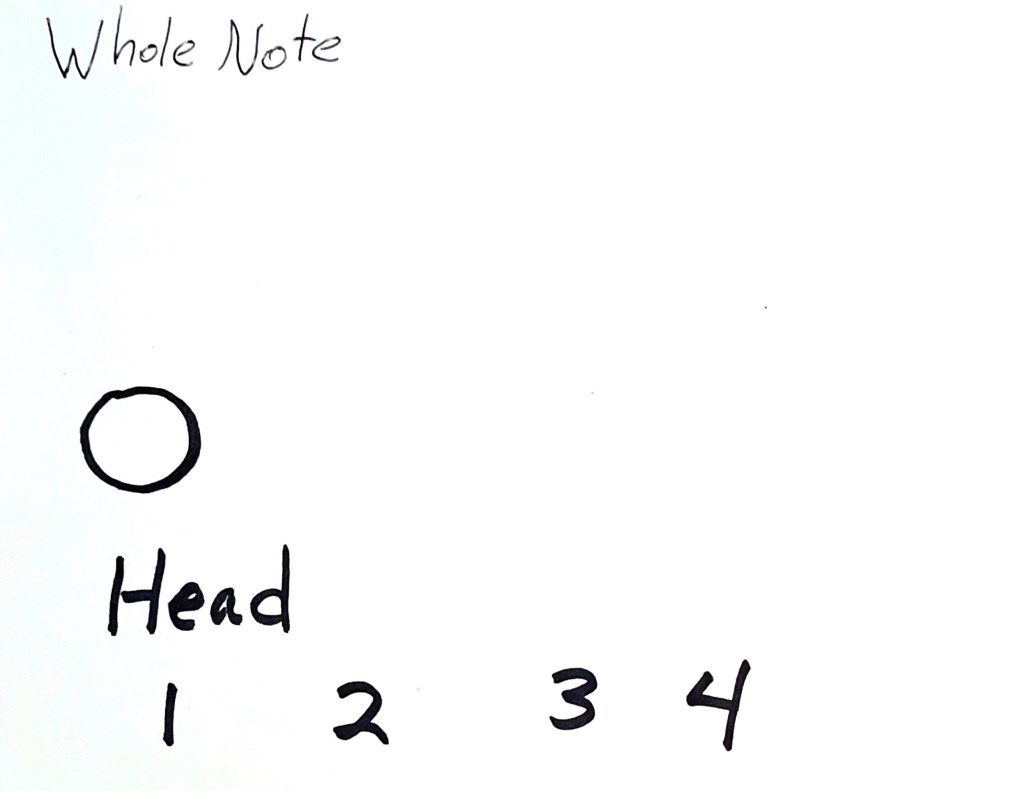 Whole Note
Head
1 2 3 4